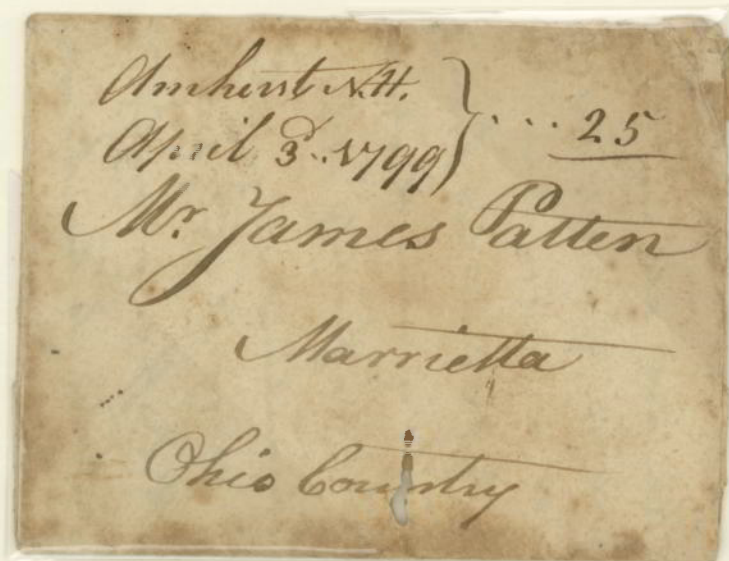 Amherst N.H.
April 3d. 1799 } .... 25
Mr. James Patten
Marrietta
Ohio Country